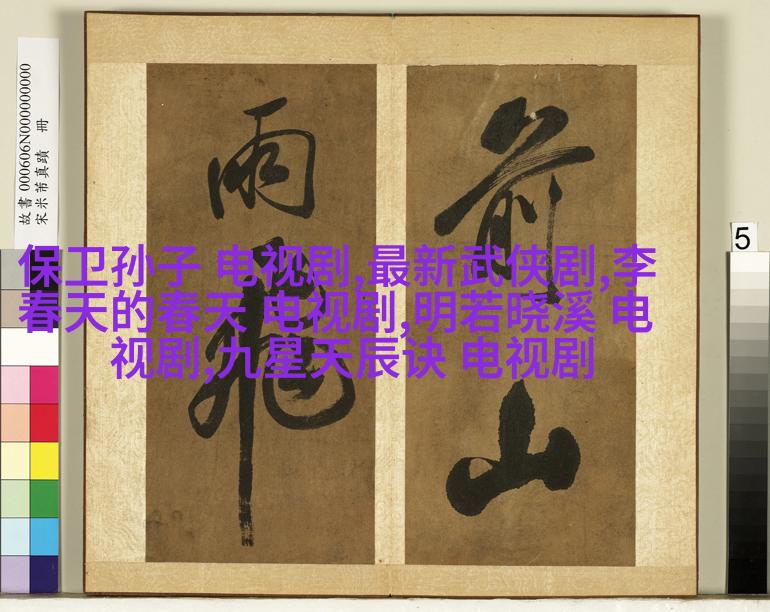 前山
雨飛
保卫孙子 电视剧,最新武侠剧,李
春天的春天 电视剧,明若晓溪 电
视剧,九星天辰诀 电视剧
故書 000606N000000000
宋米芾真蹟 冊
5